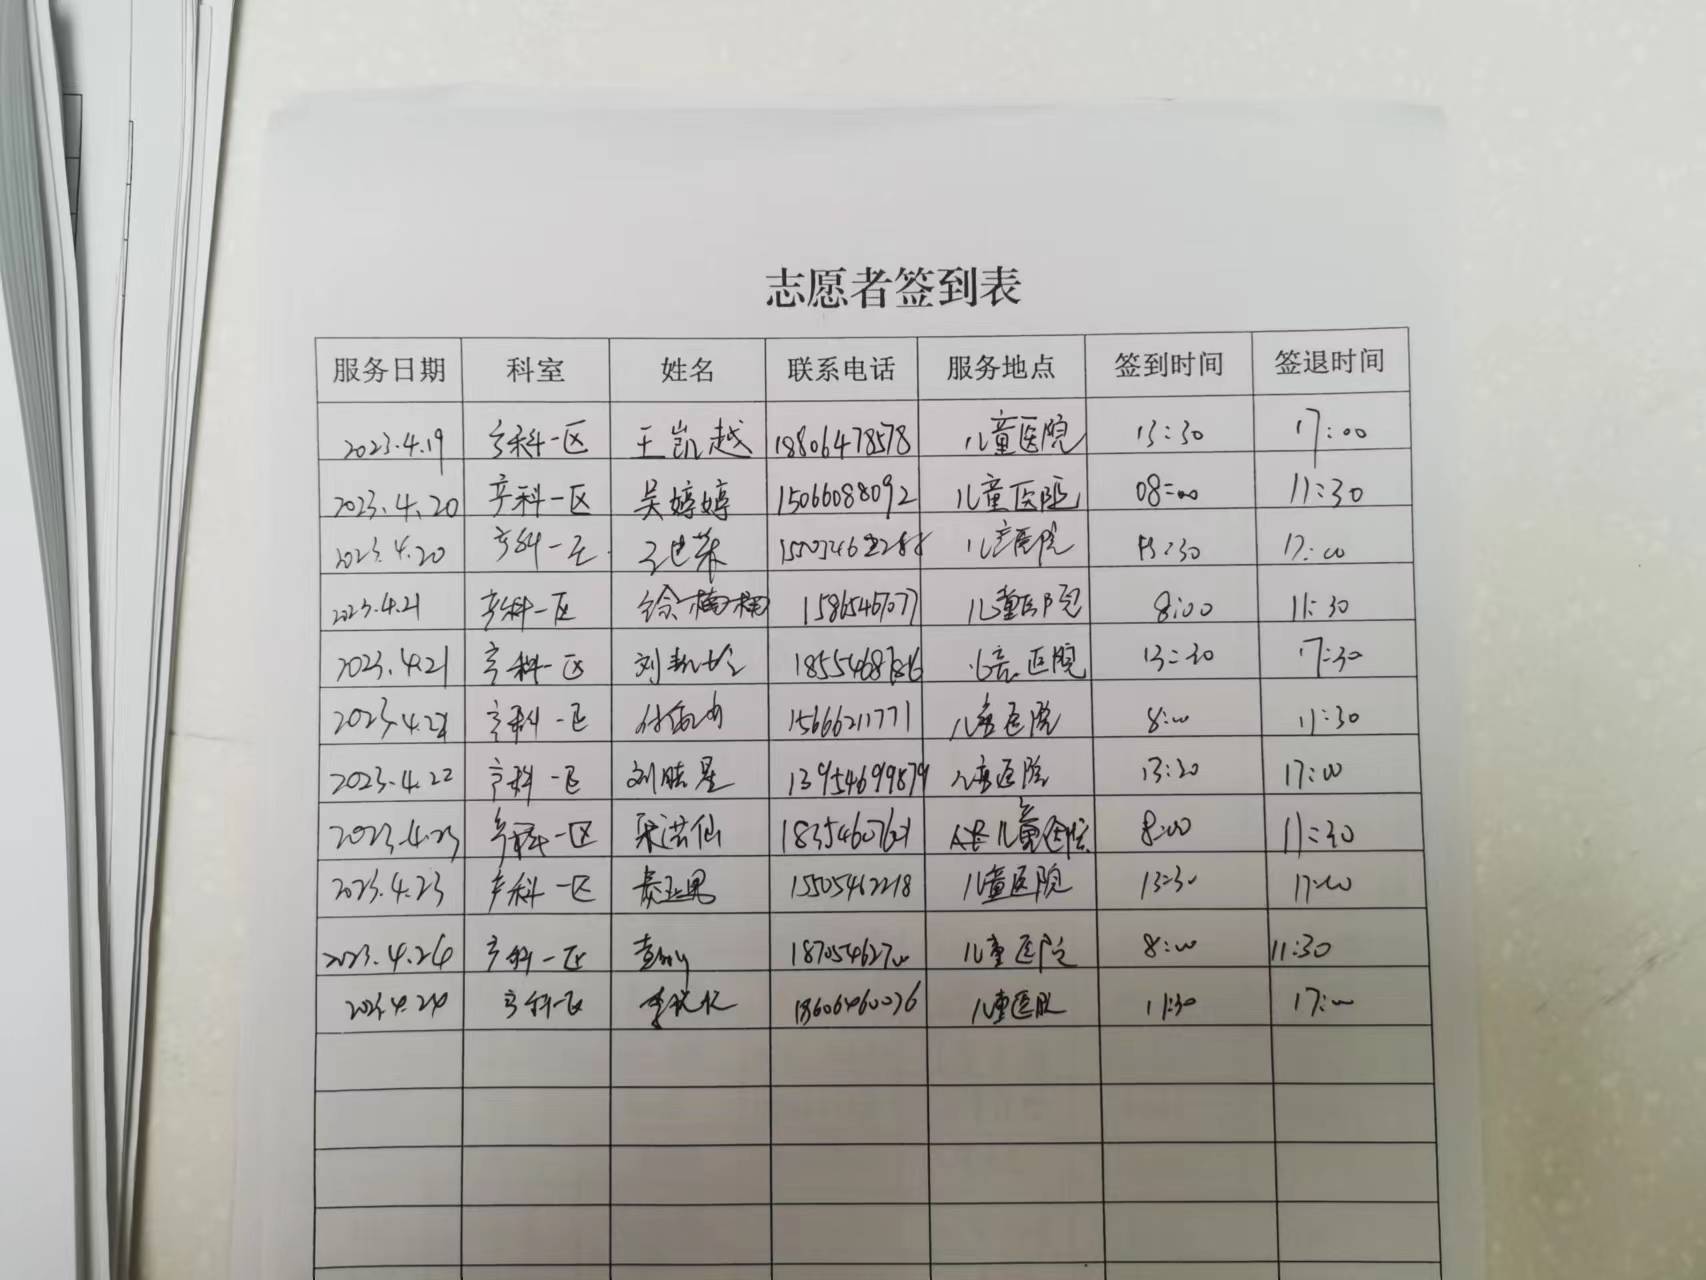 志愿者签到表
服务日期 科室 姓名 联系电话 服务地点 签到时间 签退时间
2023.4.19 产科一区 王凯越 18806478578 儿童医院 13:30 17:00
2023.4.20 产科一区 吴婷婷 15066088092 儿童医院 08:00 11:30
2023.4.20 产科一区 儿童医院 13:30 17:00
2023.4.21 产科一区 徐楠楠 儿童医院 8:00 11:30
2023.4.21 产科一区 儿童医院 13:30 17:30
产科一区 15666211771 儿童医院 8:00 11:30
2023.4.22 产科一区 13954699879 儿童医院 13:30 17:00
2023.4.23 产科一区 18354607621 儿童医院 8:00 11:30
2023.4.23 产科一区 15505462218 儿童医院 13:30 17:00
产科一区 18705462700 儿童医院 8:00 11:30
2023.4.24 产科一区 18606460036 儿童医院 11:30 17:00